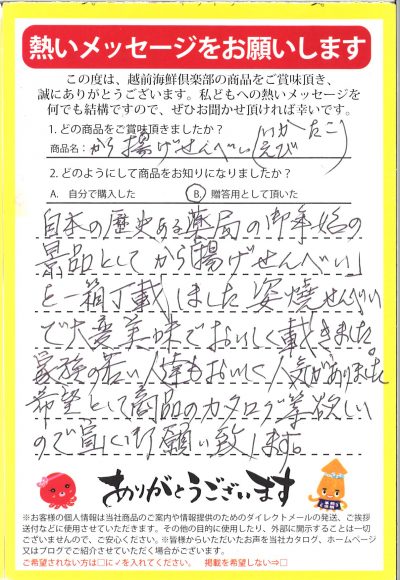 熱いメッセージをお願いします
この度は、越前海鮮倶楽部の商品をご賞味頂き、
誠にありがとうございます。私どもへの熱いメッセージを
何でも結構ですので、ぜひお聞かせ頂ければ幸いです。
1. どの商品をご賞味頂きましたか?
商品名: から揚げせんべい(いか たこ えび)
2. どのようにして商品をお知りになりましたか?
A. 自分で購入した B. 贈答用として頂いた
日本の歴史ある薬局の御年始の
景品として から揚げせんべい」
を一箱丁載しました 姿焼せんべい
で大変美味でおいしく載きました。
家族の若い人達もおいしく人気がありました
希望として商品のカタログ等欲しい
ので宜しく行願い致します。
ありがとうございます
※お客様の個人情報は当社商品のご案内や情報提供のためのダイレクトメールの発送、ご挨拶
送付などに使用させていただきます。その他の目的に使用したり、外部に開示することは一切
ございませんので、ご安心ください。※皆様からいただいたお声を当社カタログ、ホームページ
又はブログでご紹介させていただく場合がございます。
ご希望されない方は□に✓を入れてください。 掲載を希望しない⇒□